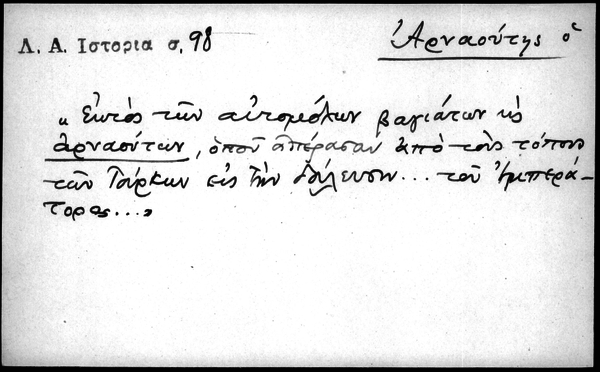 Λ. Α. Ιστορια σ. 98
Ἀρναούτης ὁ
« Ἐκτὸς τῶν αὐτομόλων βαγιάτων κ̀
ἀρναούτων, ὁποῦ ἀπέρασαν ἀπὸ τοὺς τόπους
τῶν Τούρκων εἰς τὴν δούλευσιν... τοῦ Ἰμπερά-
τορος...»